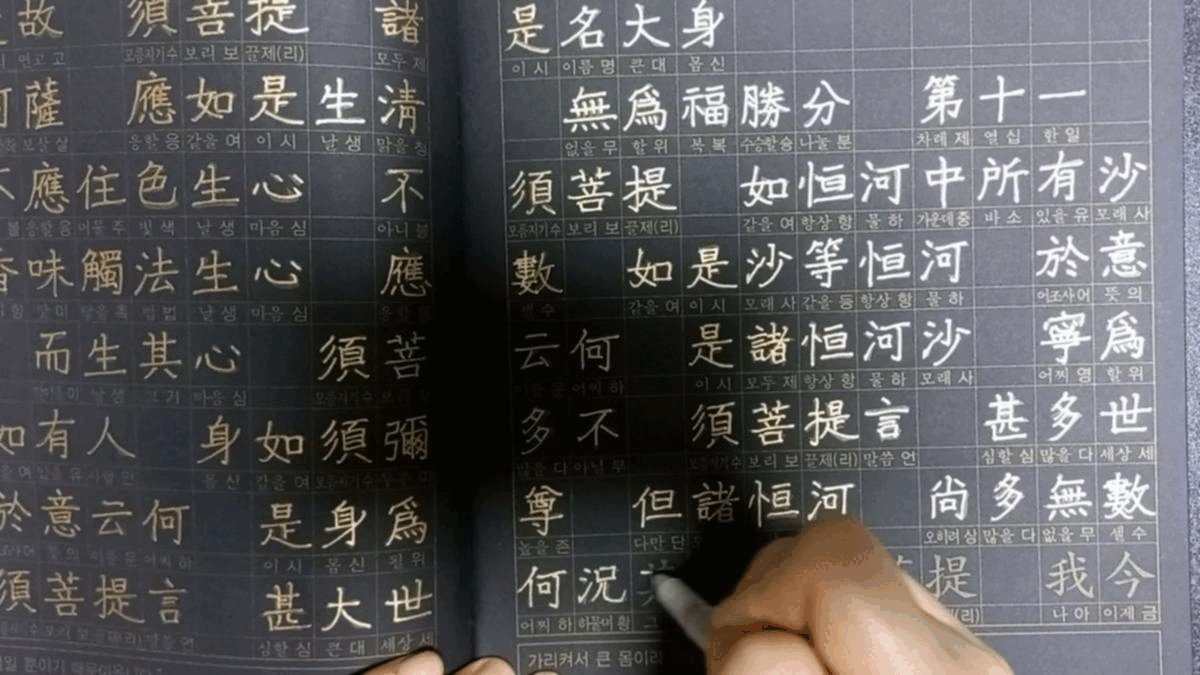 故 須菩提 諸
연고 고 모름지기 수 보리 보 끌 제(리) 모두 제
薩 應如是生淸
보살 살 응할 응 같을 여 이 시 날 생 맑을 청
應住色生心 不
응할 응 머물 주 빛 색 날 생 마음 심 아니 불
味觸法生心 應
맛 미 닿을 촉 법 법 날 생 마음 심 응할 응
而生其心 須菩
말이을 이 날 생 그 기 마음 심 모름지기 수
如有人 身如須彌
같을 여 있을 유 사람 인 몸 신 같을 여 모름지기 수
於意云何 是身爲
어조사 어 뜻 의 이를 운 어찌 하 이 시 몸 신 될 위
須菩提言 甚大世
보리 보 끌 제(리) 말씀 언 심할 심 큰 대 세상 세
是名大身
이 시 이름 명 큰 대 몸 신
無爲福勝分 第十一
없을 무 할 위 복 복 수승할 승 나눌 분 차례 제 열 십 한 일
須菩提 如恒河中所有沙
모름지기 수 보리 보 끌 제(리) 같을 여 항상 항 물 하 가운데 중 바 소 있을 유 모래 사
數 如是沙等恒河 於意
셀 수 같을 여 이 시 모래 사 같을 등 항상 항 물 하 어조사 어 뜻 의
云何 是諸恒河沙 寧爲
이를 운 어찌 하 이 시 모두 제 항상 항 물 하 모래 사 어찌 영 할 위
多不 須菩提言 甚多世
많을 다 아닐 부 모름지기 수 보리 보 끌 제(리) 말씀 언 심할 심 많을 다 세상 세
尊 但諸恒河 尙多無數
높을 존 다만 단 오히려 상 많을 다 없을 무 셀 수
何況 提 我今
어찌 하 하물며 황 그 나 아 이제 금
가리켜서 큰 몸이라